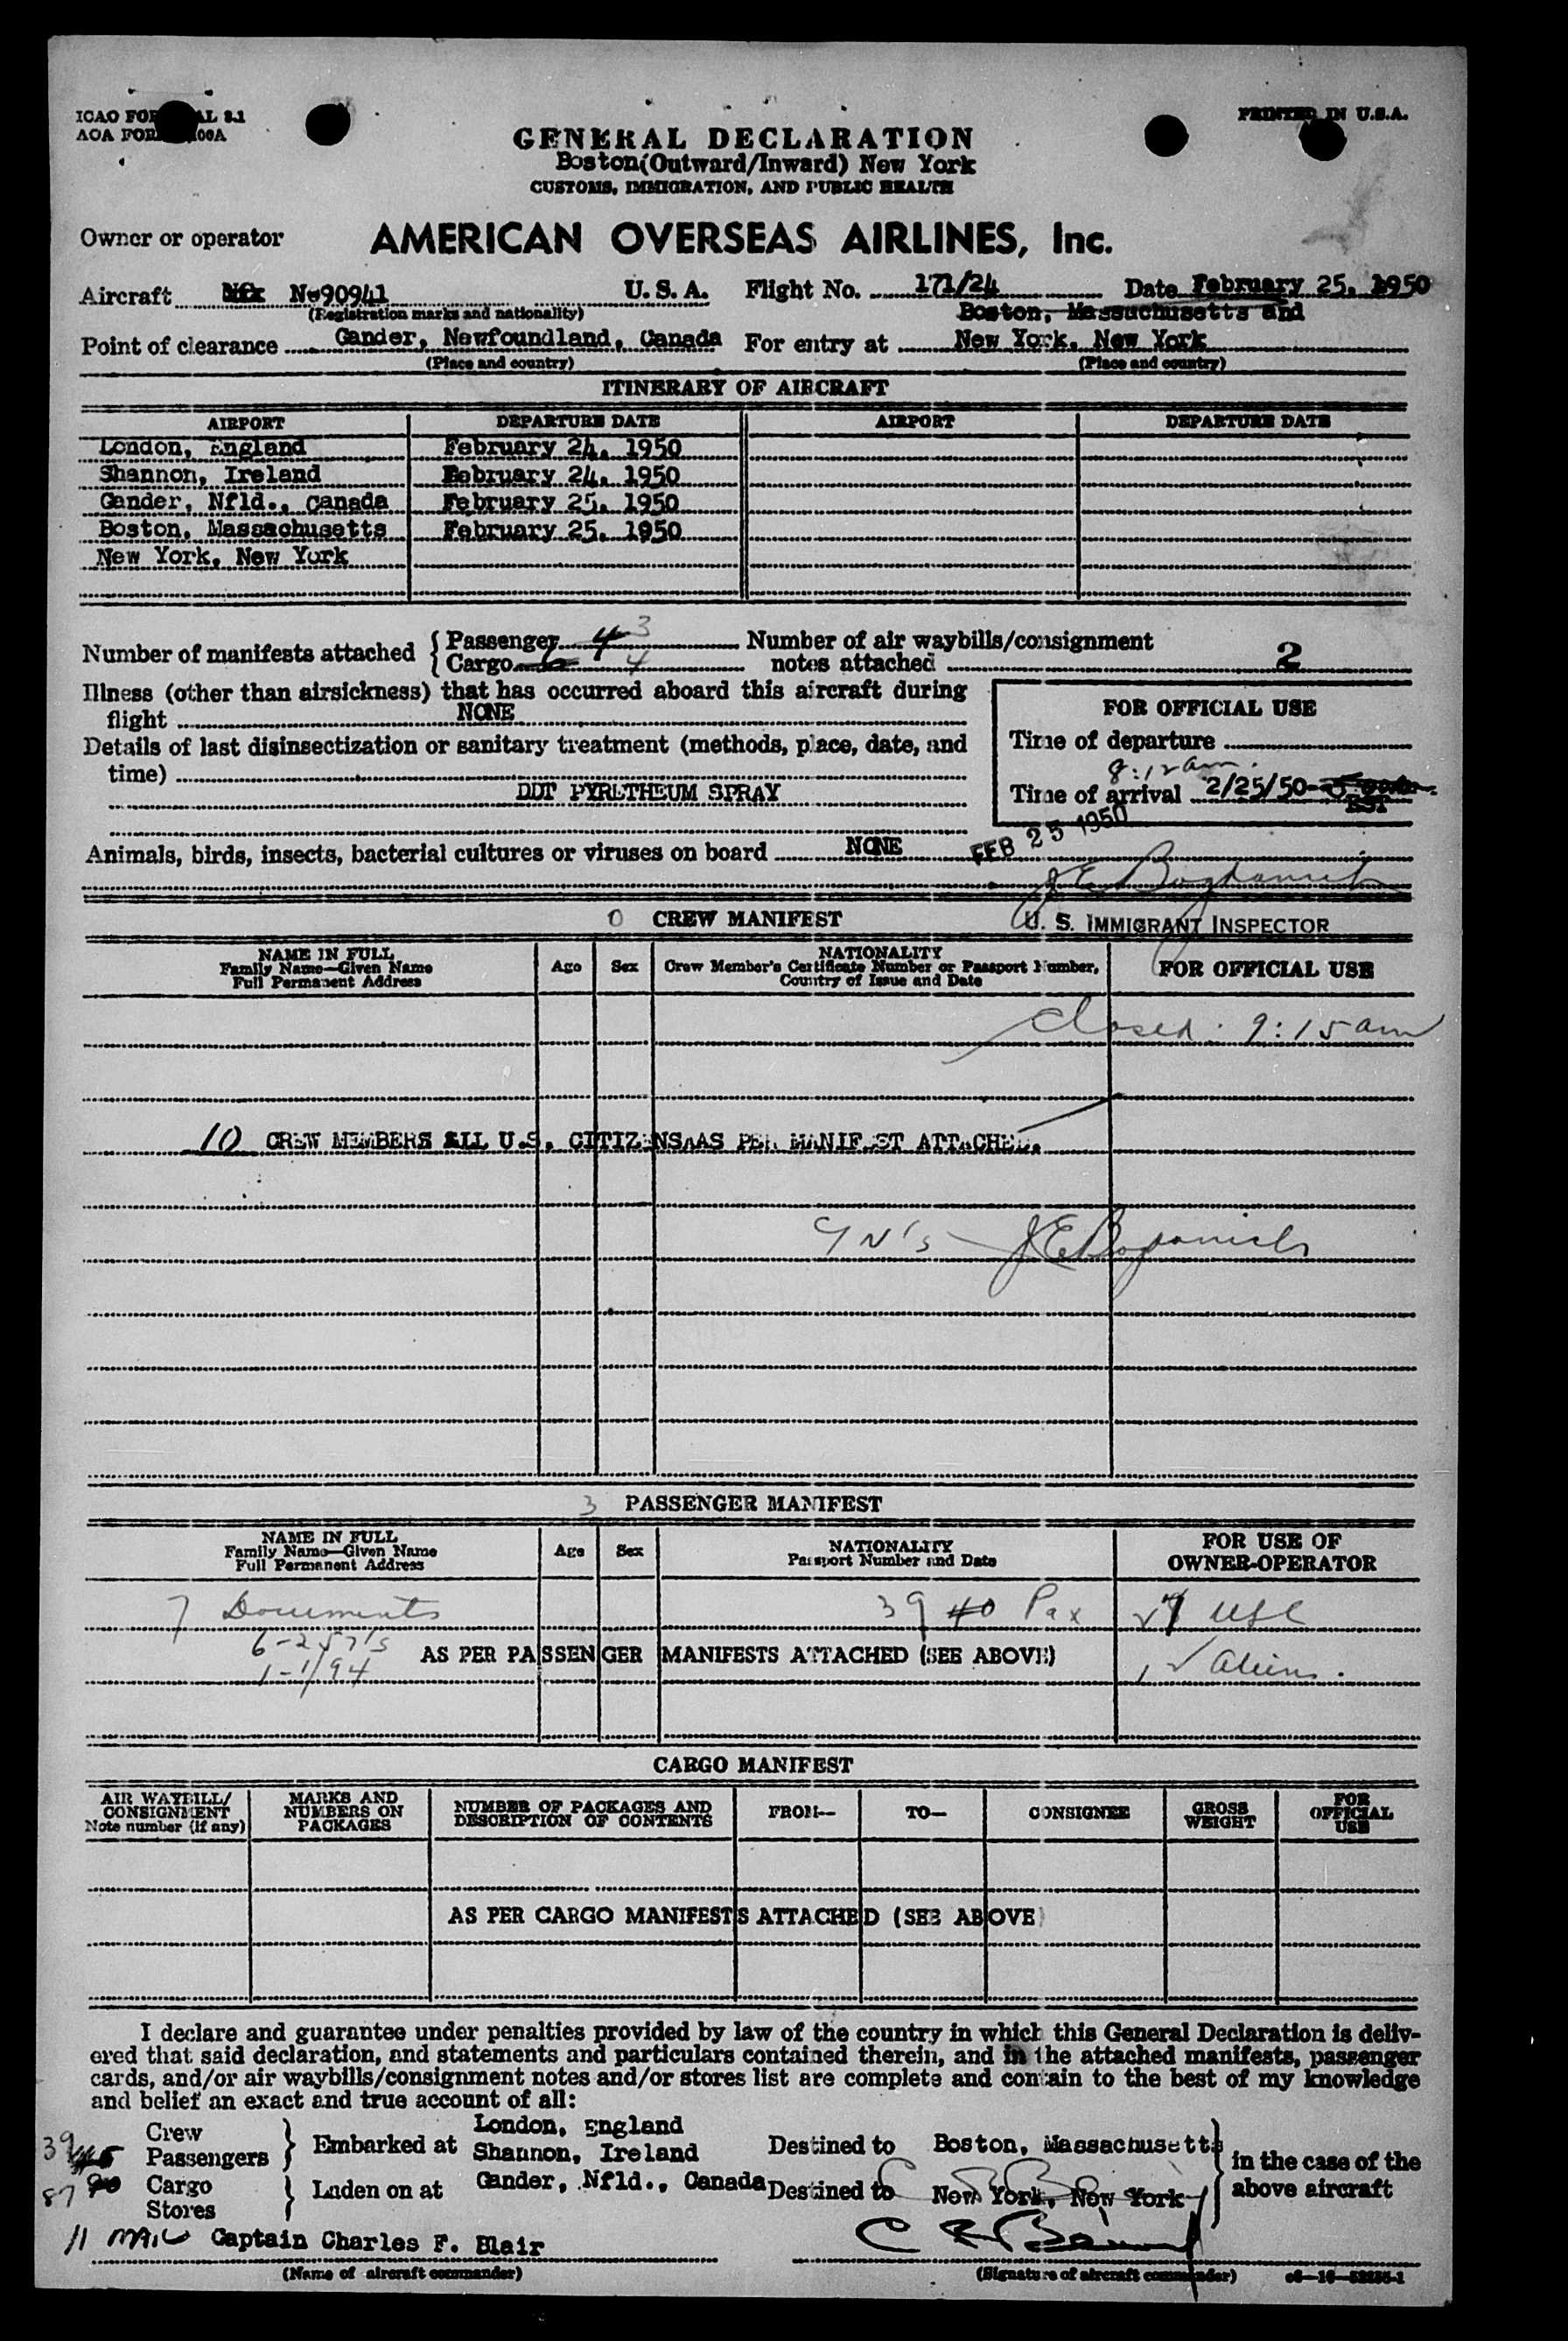 PRINTED IN U.S.A.
GENERAL DECLARATION
Boston(Outward/Inward) New York
CUSTOMS, IMMIGRATION, AND PUBLIC HEALTH
Owner or operator AMERICAN OVERSEAS AIRLINES, Inc.
Aircraft N-90941 U. S. A. Flight No. 171/24 Date February 25, 1950
(Registration marks and nationality) Boston, Massachusetts and
Point of clearance Gander, Newfoundland, Canada For entry at New York, New York
(Place and country) (Place and country)
ITINERARY OF AIRCRAFT
AIRPORT DEPARTURE DATE AIRPORT DEPARTURE DATE
London, England February 24, 1950
Shannon, Ireland February 24, 1950
Gander, Nfld., Canada February 25, 1950
Boston, Massachusetts February 25, 1950
New York, New York
Number of manifests attached { Passenger 4 3 Number of air waybills/consignment
Cargo 4 notes attached 2
Illness (other than airsickness) that has occurred aboard this aircraft during
flight NONE
FOR OFFICIAL USE
Details of last disinsectization or sanitary treatment (methods, place, date, and
time)
DDT PYRETHEUM SPRAY
Time of departure
8:12 am.
Time of arrival 2/25/50
EST
FEB 25 1950
Animals, birds, insects, bacterial cultures or viruses on board NONE
U. S. IMMIGRANT INSPECTOR
0 CREW MANIFEST
NAME IN FULL
Family Name—Given Name
Full Permanent Address
Age Sex
NATIONALITY
Crew Member's Certificate Number or Passport Number,
Country of Issue and Date
FOR OFFICIAL USE
Closed. 9:15 am
10 CREW MEMBERS ALL U.S. CITIZENSAAS PER MANIFEST ATTACHED.
3 PASSENGER MANIFEST
NAME IN FULL
Family Name—Given Name
Full Permanent Address
Age Sex
NATIONALITY
Passport Number and Date
FOR USE OF
OWNER-OPERATOR
7 Documents 39 40 Pax USC
6-257's
1-1/94 AS PER PASSENGER MANIFESTS ATTACHED (SEE ABOVE) Aliens.
CARGO MANIFEST
AIR WAYBILL/
CONSIGNMENT
Note number (if any)
MARKS AND
NUMBERS ON
PACKAGES
NUMBER OF PACKAGES AND
DESCRIPTION OF CONTENTS
FROM— TO— CONSIGNEE
GROSS
WEIGHT
FOR
OFFICIAL
USE
AS PER CARGO MANIFESTS ATTACHED (SEE ABOVE)
I declare and guarantee under penalties provided by law of the country in which this General Declaration is deliv-
ered that said declaration, and statements and particulars contained therein, and in the attached manifests, passenger
cards, and/or air waybills/consignment notes and/or stores list are complete and contain to the best of my knowledge
and belief an exact and true account of all:
Crew London, England
39 Passengers } Embarked at Shannon, Ireland Destined to Boston, Massachusetts in the case of the
87 90 Cargo } Laden on at Gander, Nfld., Canada Destined to New York, New York above aircraft
Stores
11 MAIL Captain Charles F. Blair
(Name of aircraft commander) (Signature of aircraft commander)